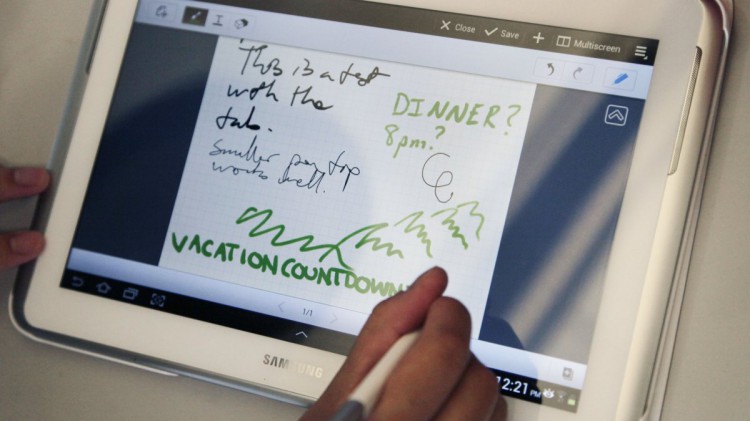 Close Save Multiscreen
This is a test
with the
tab.
Smaller pen top
works well.
DINNER?
8pm?
VACATION COUNTDOWN
1/1
SAMSUNG
12:21 PM